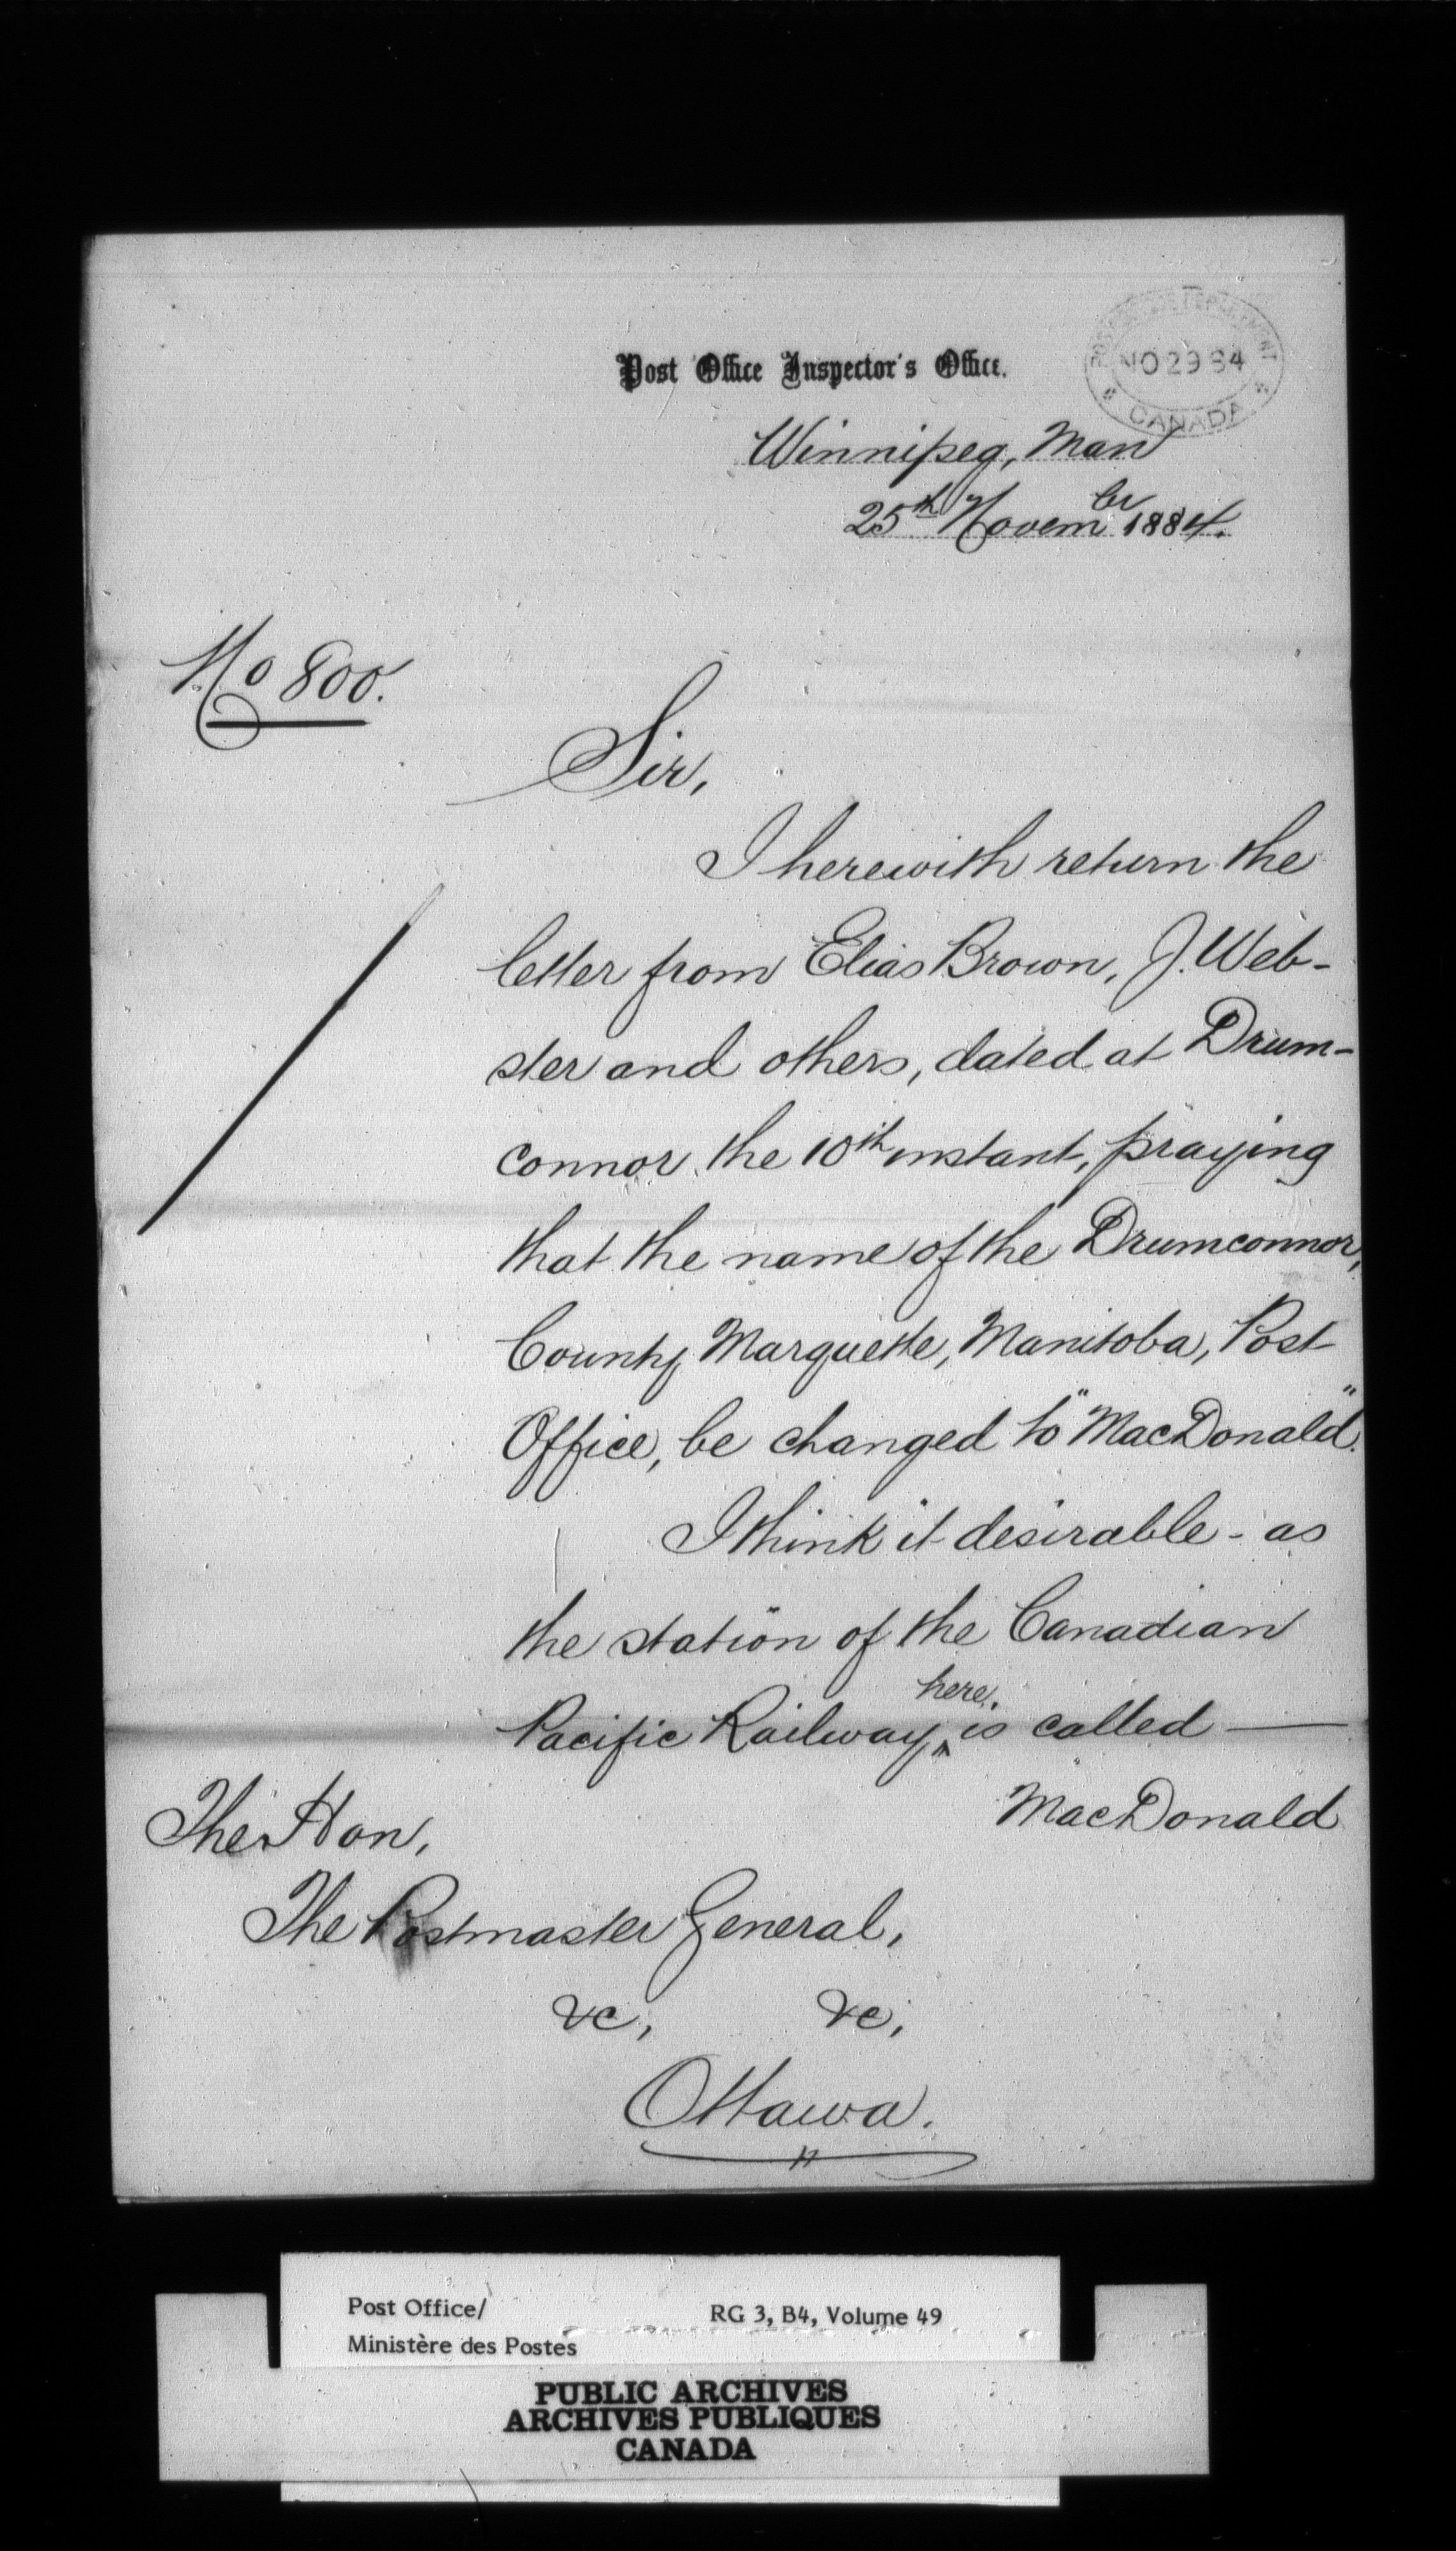 Post Office Inspector's Office.
POST OFFICE DEPARTMENT
NO 29 84
CANADA
Winnipeg, Man
25th November 1884.
No 800.
Sir,
I herewith return the
letter from Elias Brown, J. Web-
ster and others, dated at Drum-
connor the 10th instant, praying
that the name of the Drumconnor,
County Marquette, Manitoba, Post
Office, be changed to "MacDonald".
I think it desirable - as
the station of the Canadian
Pacific Railway here is called —
MacDonald
The Hon,
The Postmaster General,
&c, &c,
Ottawa.
Post Office/ RG 3, B4, Volume 49
Ministère des Postes
PUBLIC ARCHIVES
ARCHIVES PUBLIQUES
CANADA